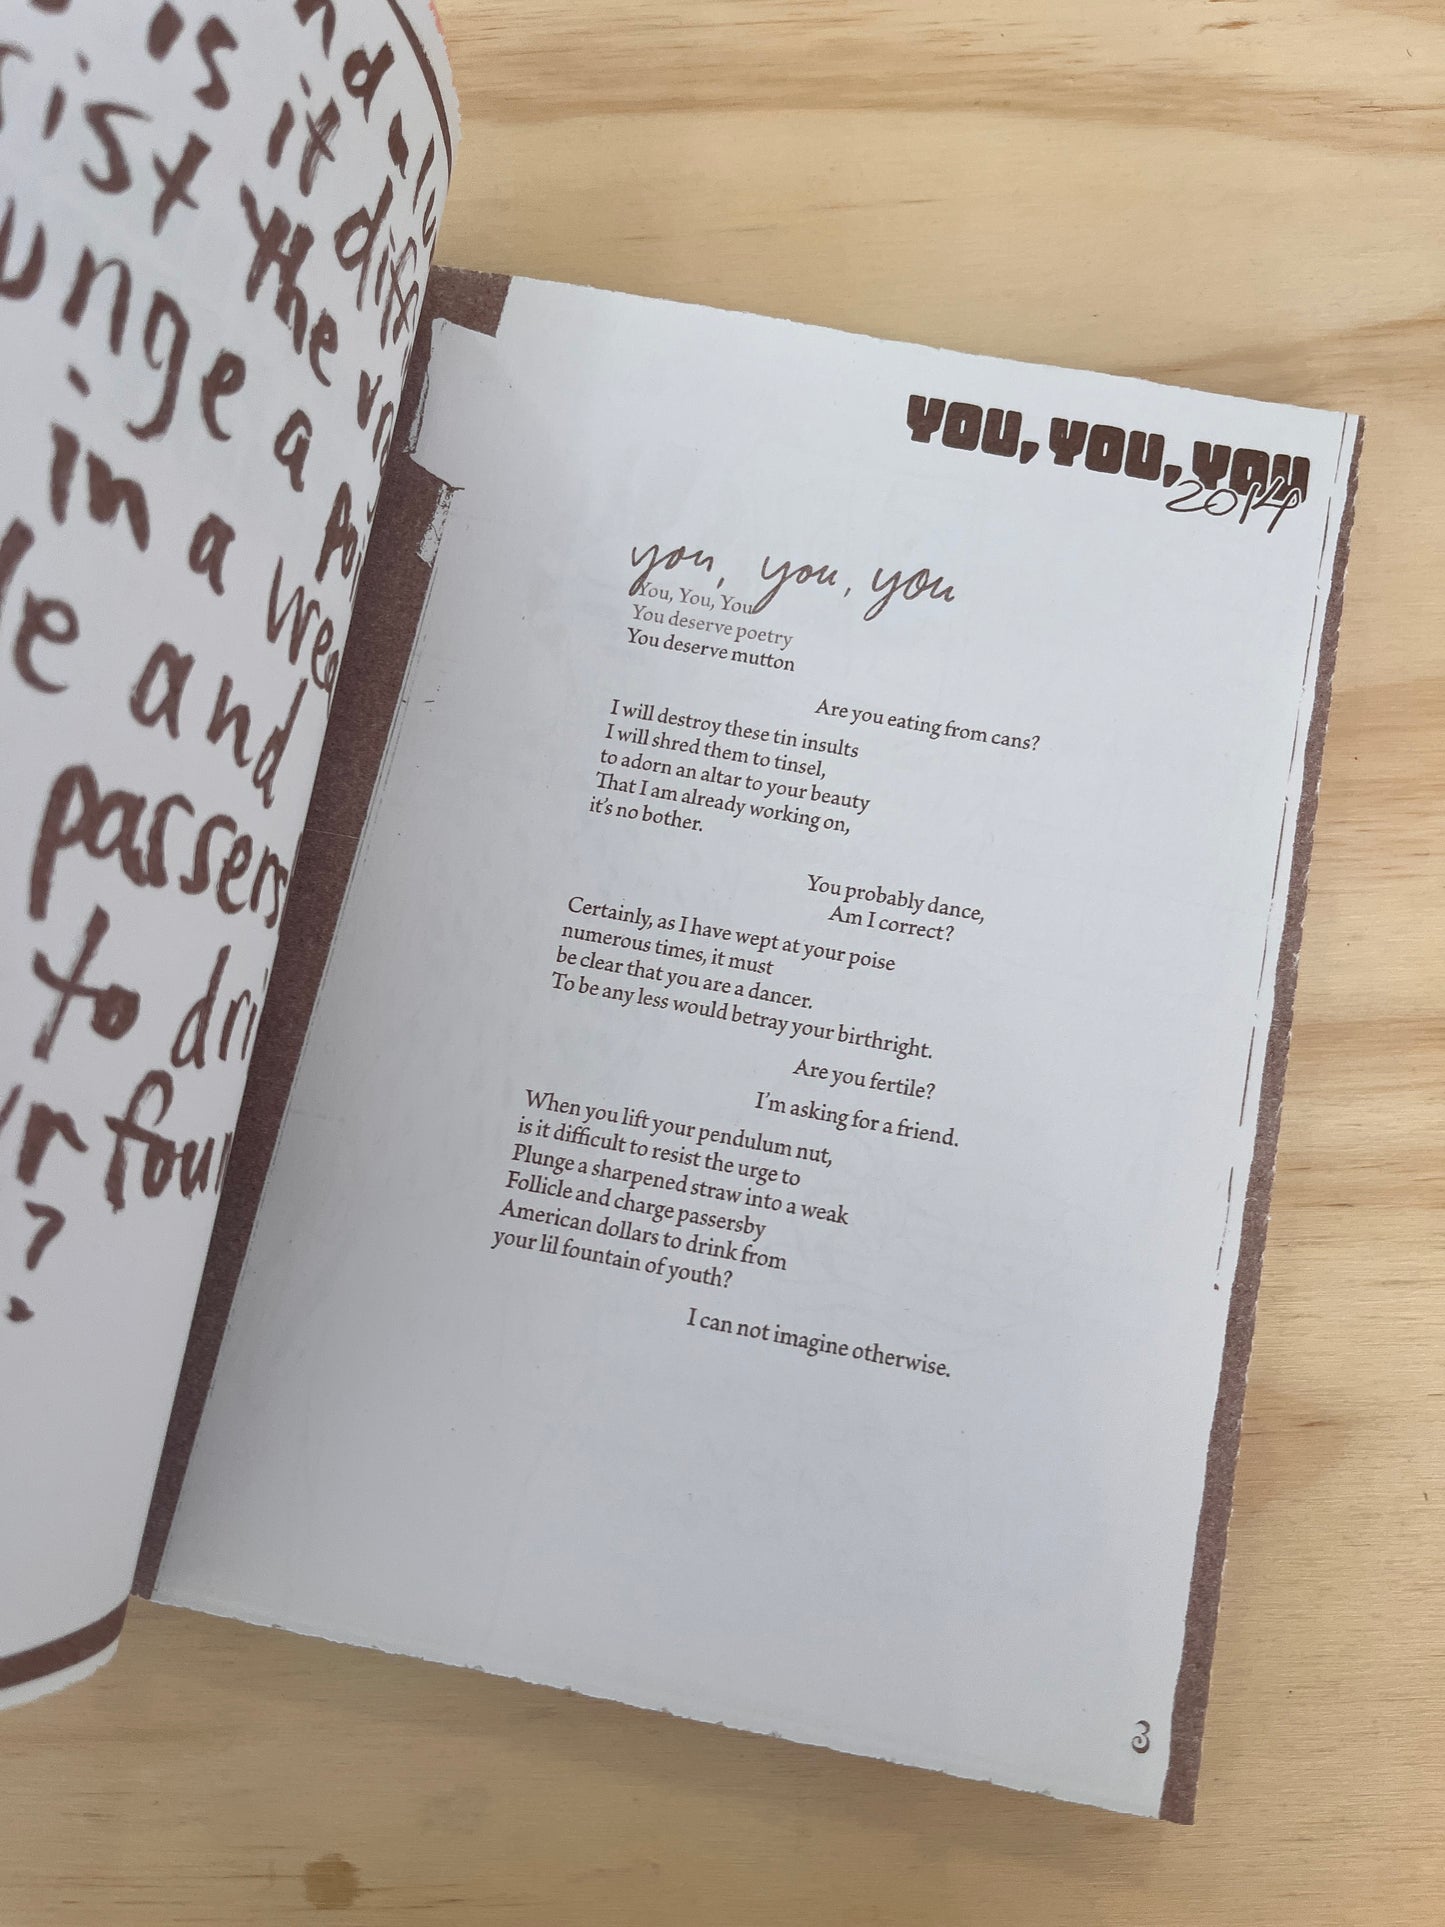 is
and
sist
it
diff
unge a
the
in a
le and
passers
to
your
?
YOU, YOU, YOU
2014
you, you, you
You, You, You
You deserve poetry
You deserve mutton
Are you eating from cans?
I will destroy these tin insults
I will shred them to tinsel,
to adorn an altar to your beauty
That I am already working on,
it's no bother.
You probably dance,
Am I correct?
Certainly, as I have wept at your poise
numerous times, it must
be clear that you are a dancer.
To be any less would betray your birthright.
Are you fertile?
I'm asking for a friend.
When you lift your pendulum nut,
is it difficult to resist the urge to
Plunge a sharpened straw into a weak
Follicle and charge passersby
American dollars to drink from
your lil fountain of youth?
I can not imagine otherwise.
3